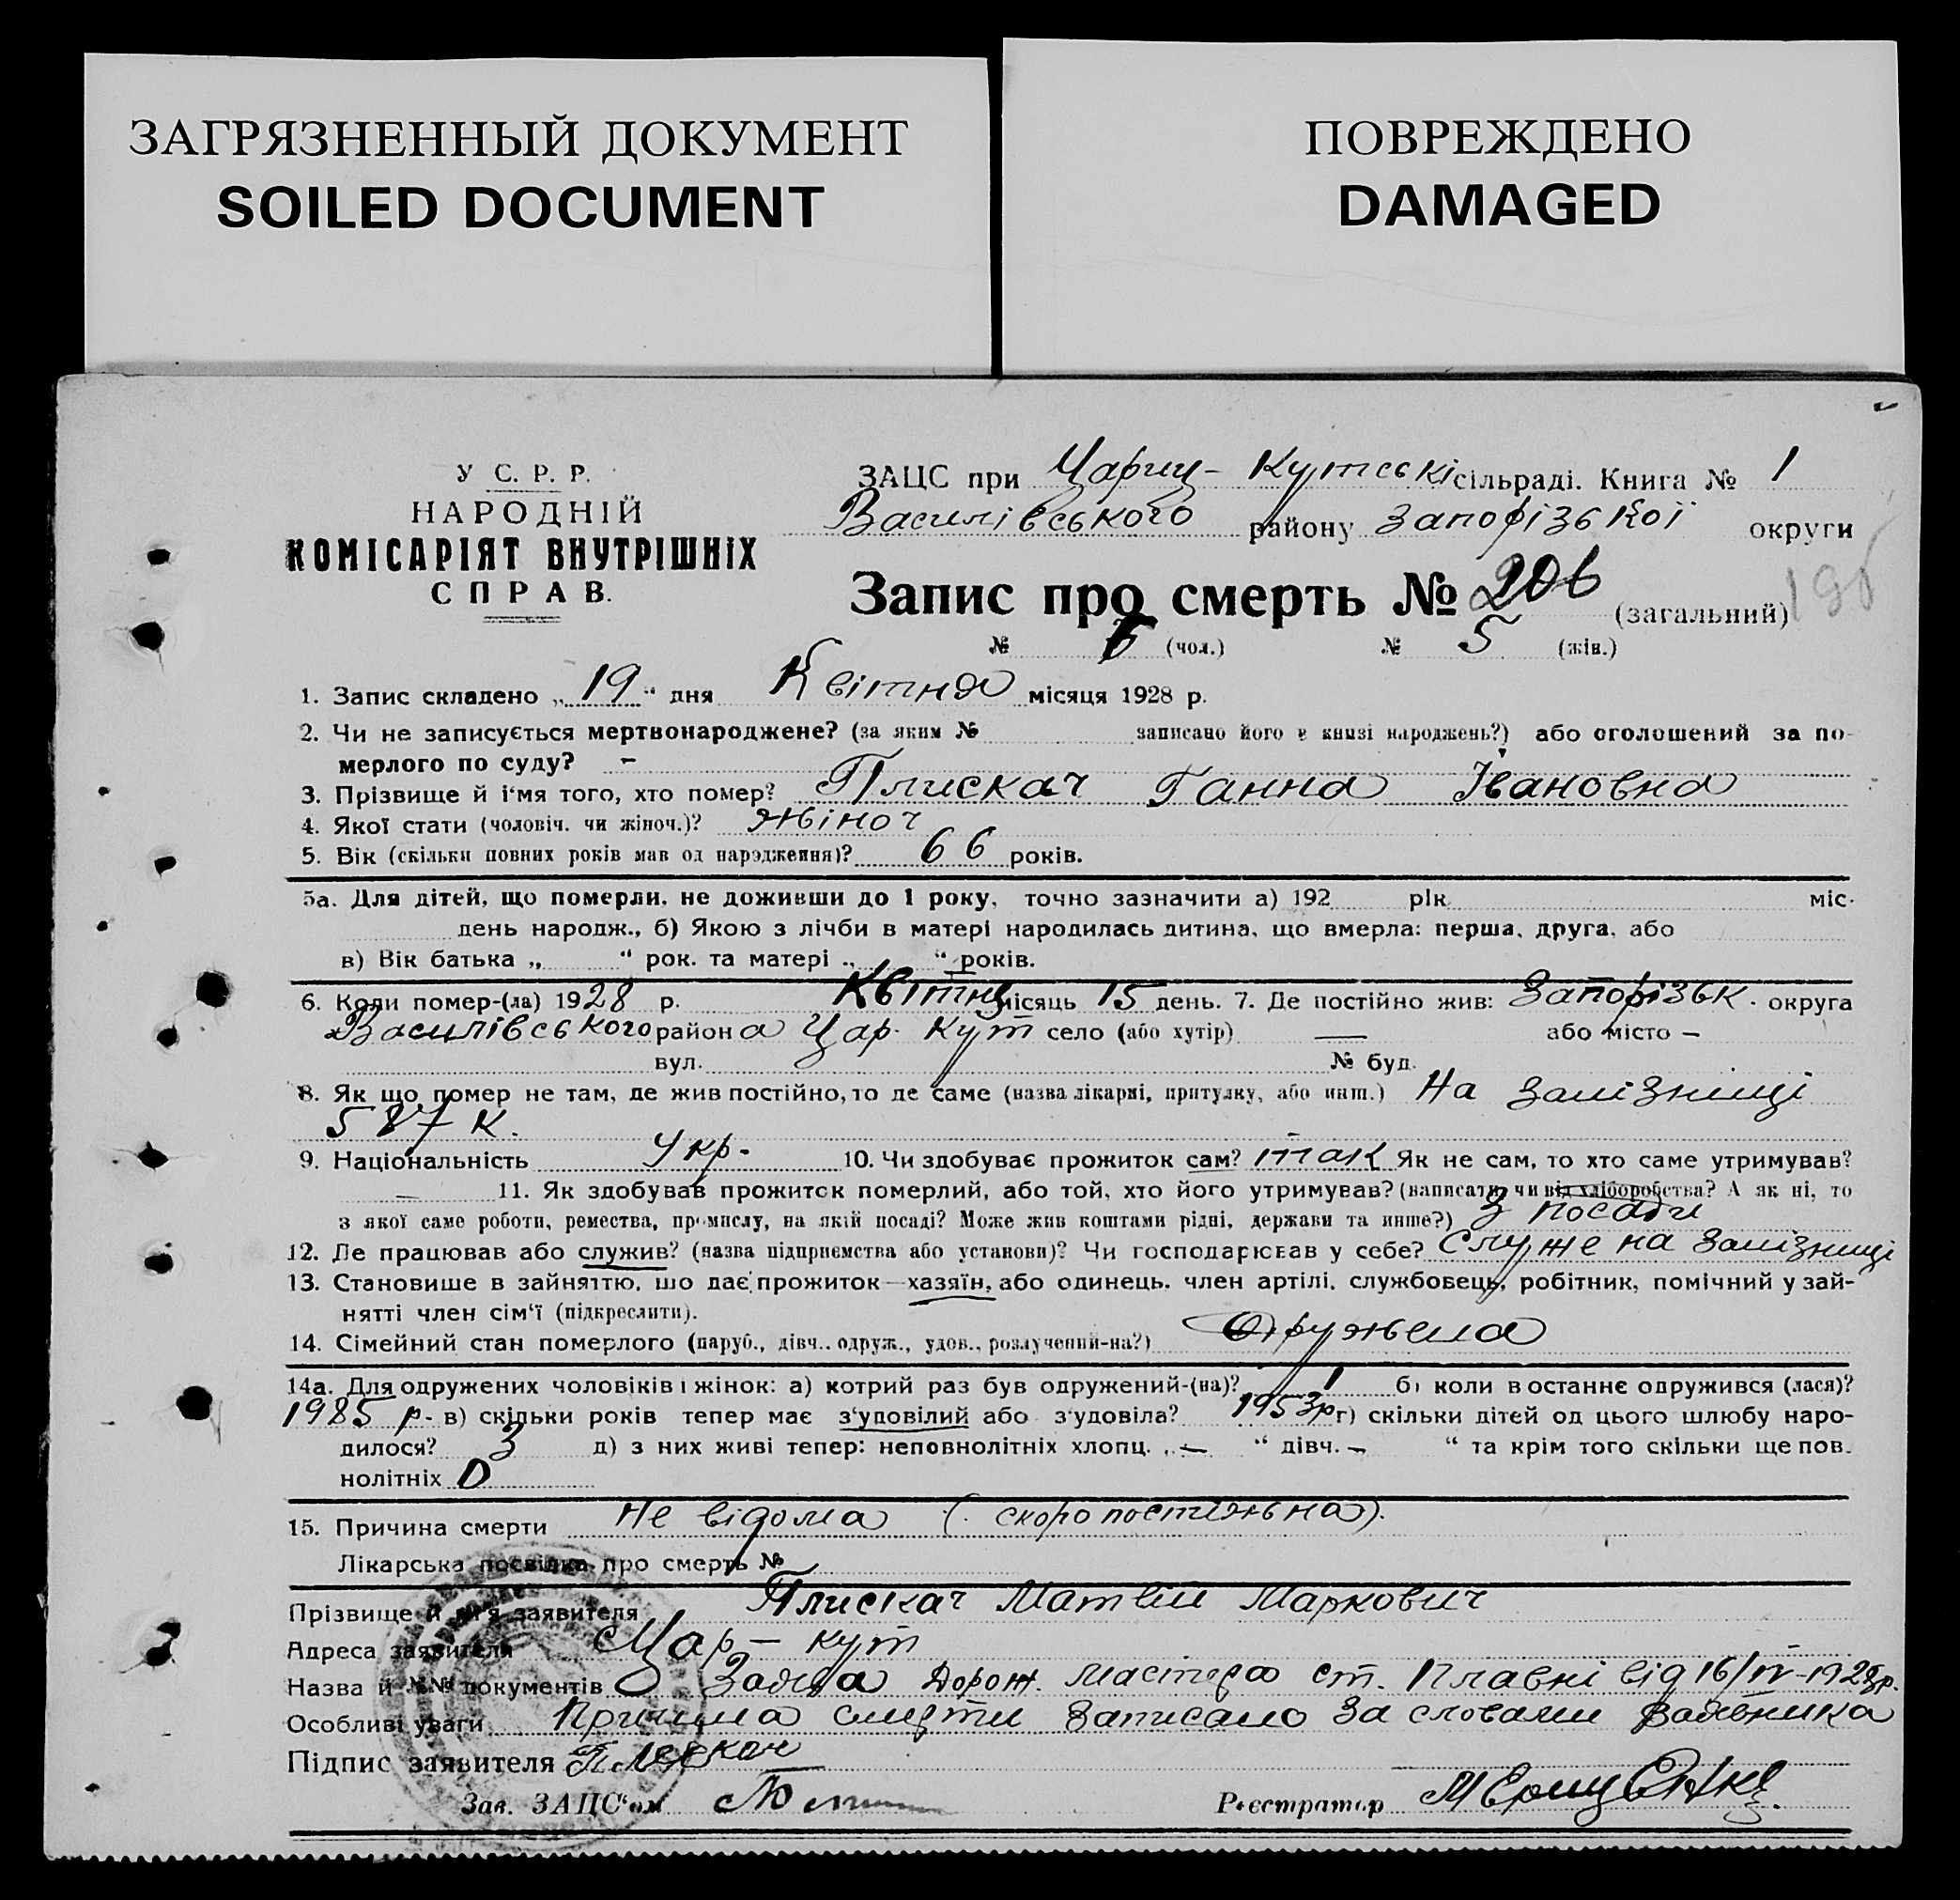 ЗАГРЯЗНЕННЫЙ ДОКУМЕНТ
SOILED DOCUMENT
ПОВРЕЖДЕНО
DAMAGED
У С. Р. Р.
НАРОДНІЙ
КОМІСАРІЯТ ВНУТРІШНІХ
СПРАВ.
ЗАЦС при Цариц- Кутські сільраді. Книга № 1
Василівського району Запорізької округи
Запис про смерть № 206 (загальний) 195
№ 6 (чол.) № 5 (жін.)
1. Запис складено „19“ дня Квітня місяця 1928 р.
2. Чи не записується мертвонароджене? (за яким № записано його в книзі народжень?) або оголошений за по-
мерлого по суду? –
3. Прізвище й і'мя того, хто помер? Плискач Ганна Івановна
4. Якої стати (чоловіч. чи жіноч.)? жіноч
5. Вік (скільки повних років мав од народження)? 66 років.
5а. Для дітей, що померли, не доживши до 1 року, точно зазначити а) 192 рік міс.
день народж., б) Якою з лічби в матері народилась дитина, що вмерла: перша, друга, або
в) Вік батька „ “ рок. та матері „ “ років.
6. Коли помер-(ла) 1928 р. Квітня місяць 15 день. 7. Де постійно жив: Запорізьк. округа
Василівського района Цар. Кут село (або хутір) — або місто –
вул. № буд.
8. Як що помер не там, де жив постійно, то де саме (назва лікарні, притулку, або инш.) На залізниці
587 к.
9. Національність Укр. 10. Чи здобуває прожиток сам? так Як не сам, то хто саме утримував?
— 11. Як здобував прожиток померлий, або той, хто його утримував? (написати, чи від хліборобства? А як ні, то
з якої саме роботи, ремества, промислу, на якій посаді? Може жив коштами рідні, держави та инше?) З посади
12. Де працював або служив? (назва підприємства або установи)? Чи господарював у себе? Служе на залізниці
13. Становище в зайняттю, що дає прожиток—хазяїн, або одинець, член артілі, службовець, робітник, помічний у зай-
нятті член сім'ї (підкреслити).
14. Сімейний стан померлого (паруб., дівч., одруж., удов., розлучений-на?) Одружена
14а. Для одружених чоловіків і жінок: а) котрий раз був одружений-(на)? 1 б) коли в останнє одружився (лася)?
1985 р. в) скільки років тепер має з'удовілий або з'удовіла? 1953р г) скільки дітей од цього шлюбу наро-
дилося? 3 д) з них живі тепер: неповнолітніх хлопц. „— “ дівч. – “ та крім того скільки ще пов-
нолітніх 0
15. Причина смерти Не відома (скоропостижна).
Лікарська посвідка про смерть №
Прізвище й ім'я заявителя Плискач Матвій Маркович
Адреса заявителя Цар – Кут
Назва й №№ документів Заява Дорож. мастера ст. Плавні від 16/IV-1928р.
Особливі уваги Причина смерти записано за словами заявника
Підпис заявителя Плискач
Зав. ЗАЦС'ом
Реєстратор